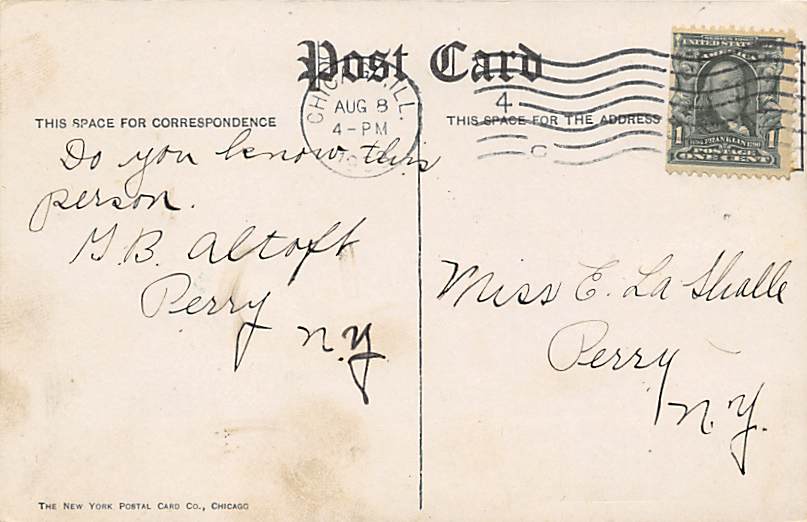 Post Card
CHICAGO, ILL.
AUG 8
4-PM
4
C
THIS SPACE FOR CORRESPONDENCE
THIS SPACE FOR THE ADDRESS
UNITED STATES
AMERICA
1 FRANKLIN 1
POSTAGE
ONE CENT
Do you know this
person.
G.B. Altoft
Perry
N.Y
Miss E. La Shalle
Perry
N.Y.
THE NEW YORK POSTAL CARD CO., CHICAGO